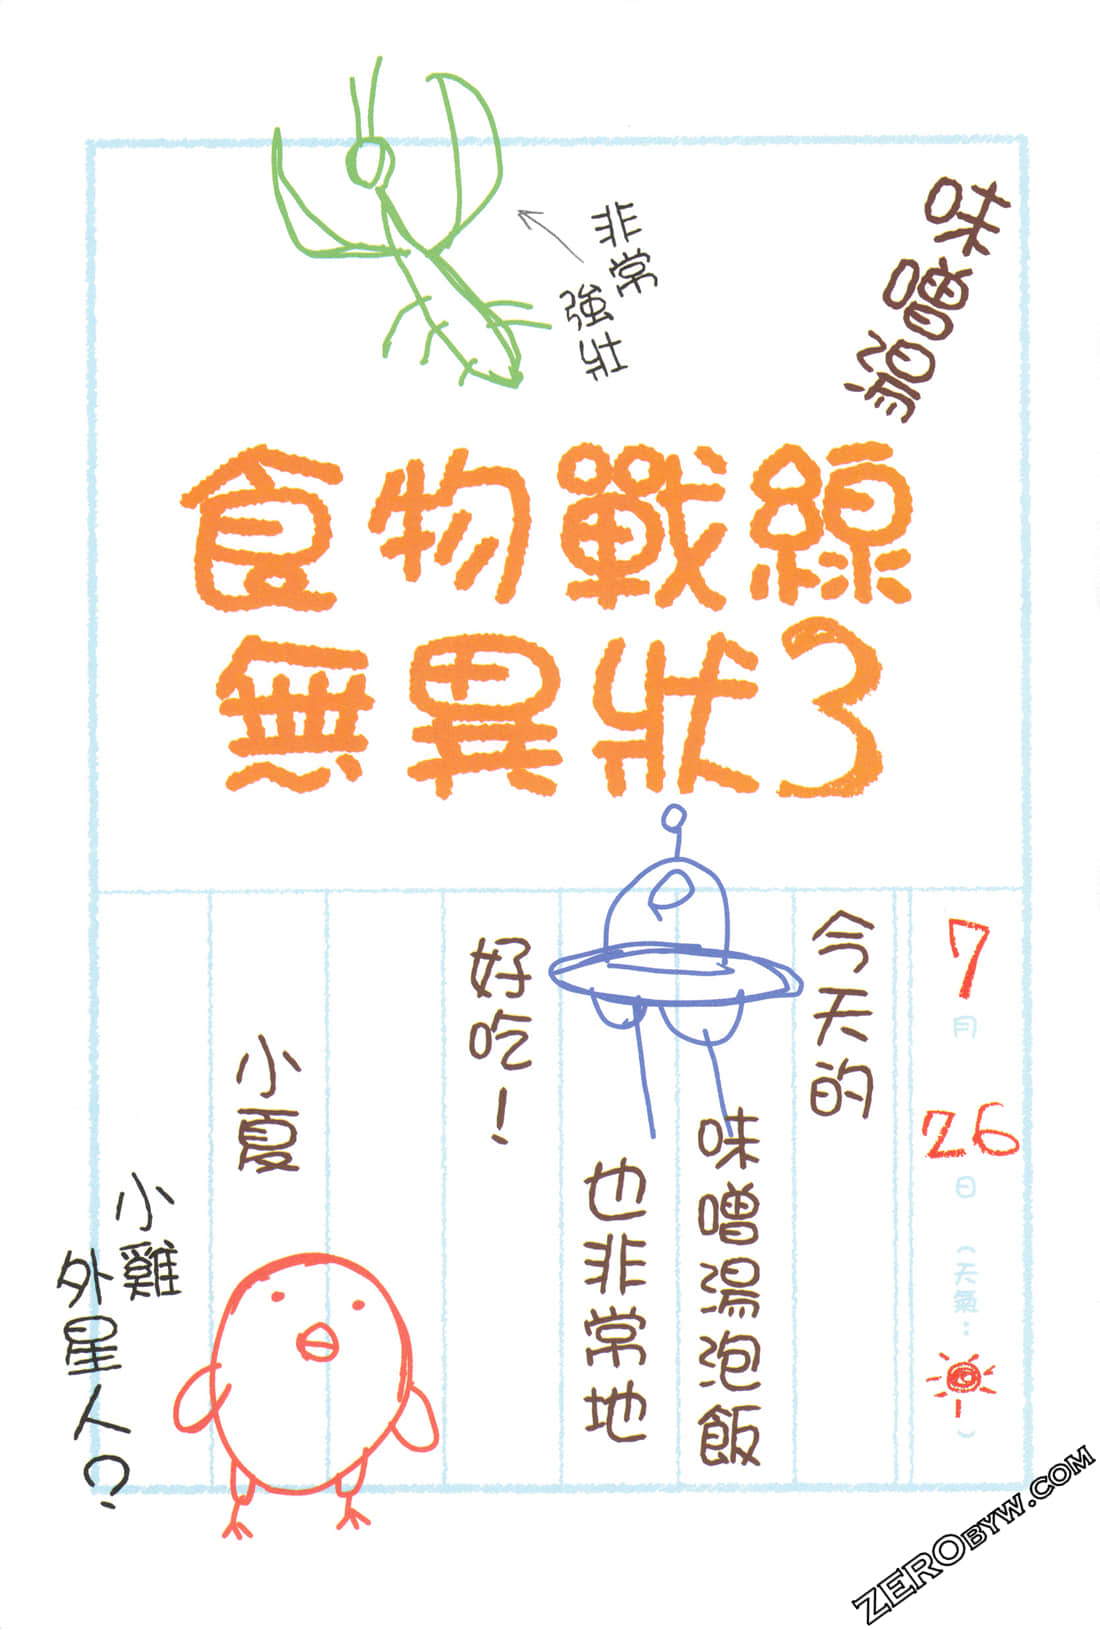 味噌湯
非常
強壯
食物戰線
無異狀3
7月26日（天氣： ）
今天的
味噌湯泡飯
也非常地
好吃！
小夏
小雞
外星人？
ZEROBYW.COM